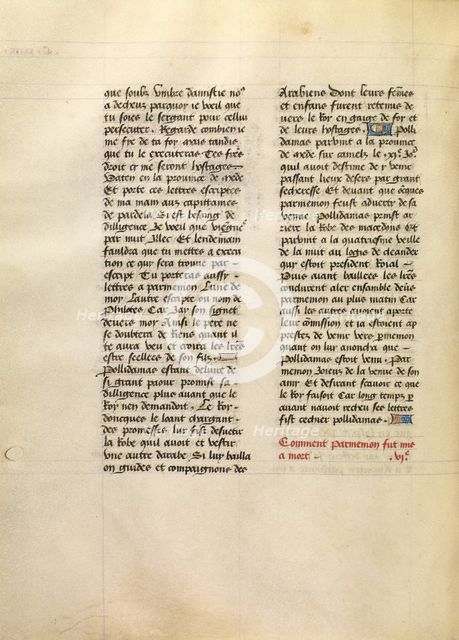 que soubz vmbre damistie no9
a deceuz parquoy ie vueil que
tu soies le sergant pour celluy
persecuter. Regarde combien ie
me fye de ta foy mais tandis
que tu le executeras Tes freres
droit cy me seront hostages
Daten en la prouince de mede
Et porte ces lettres escriptes
de ma main aux cappitaines
de pardela Si est besoing de
dilligence Je vueil que viegnes
par nuit Illec Et lendemain
fauldra que tu mettes a execu
tion ce quy sera trouue par
escript Tu porteras aussy
lettres a parmenion Lune de
moy Lautre escripte ou nom de
Philotes Car Jay son signet
deuers moy Ainsi le pere ne
se doubtera de Riens quant il
te aura veu et voira les lres
estre seellees de son filz
Pollidamas estant deliure de
si grant paour promist sa
dilligence plus auant que le
Roy nen demandoit. Le Roy
doncques le loant chargant
des promesses luy fist desuestir
la Robe quil auoit et vestir
vne autre darabe Si luy bailla
on guides et compaignons des
Arabiens dont leurs femes
et enfans furent retenus de
uers le Roy en gaige de foy et
de leurs hostages. Polli
damas paruint a la prouince
de mede sur camelz le .xi. Jor
quil auoit destine de y venir
passant lieux desers par grant
secheresse Et deuant que oncques
parmenion feust aduerty de sa
venue Pollidamas prinst ar
riere la Robe des macedons Et
paruint a la quatriesme veille
de la nuit au logis de cleander
quy estoit president Roial
Puis ayant baillees les lres
conclurent aler ensamble deuers
parmenion au plus matin Car
aussi les autres auoient aporte
leur comission et ia estoient aps
prestez de venir vers parmenion
quant on luy anoncha que
Pollidamas estoit venu. Par
menion Joieux de la venue de son
amy Et desirant scauoir ce que
le Roy faisoit Car long temps y
auant nauoit recheu ses lettres
fist cerchier pollidamas.
Comment parmenion fut mis
a mort .vi.
Heritage
Heritage
Heritage